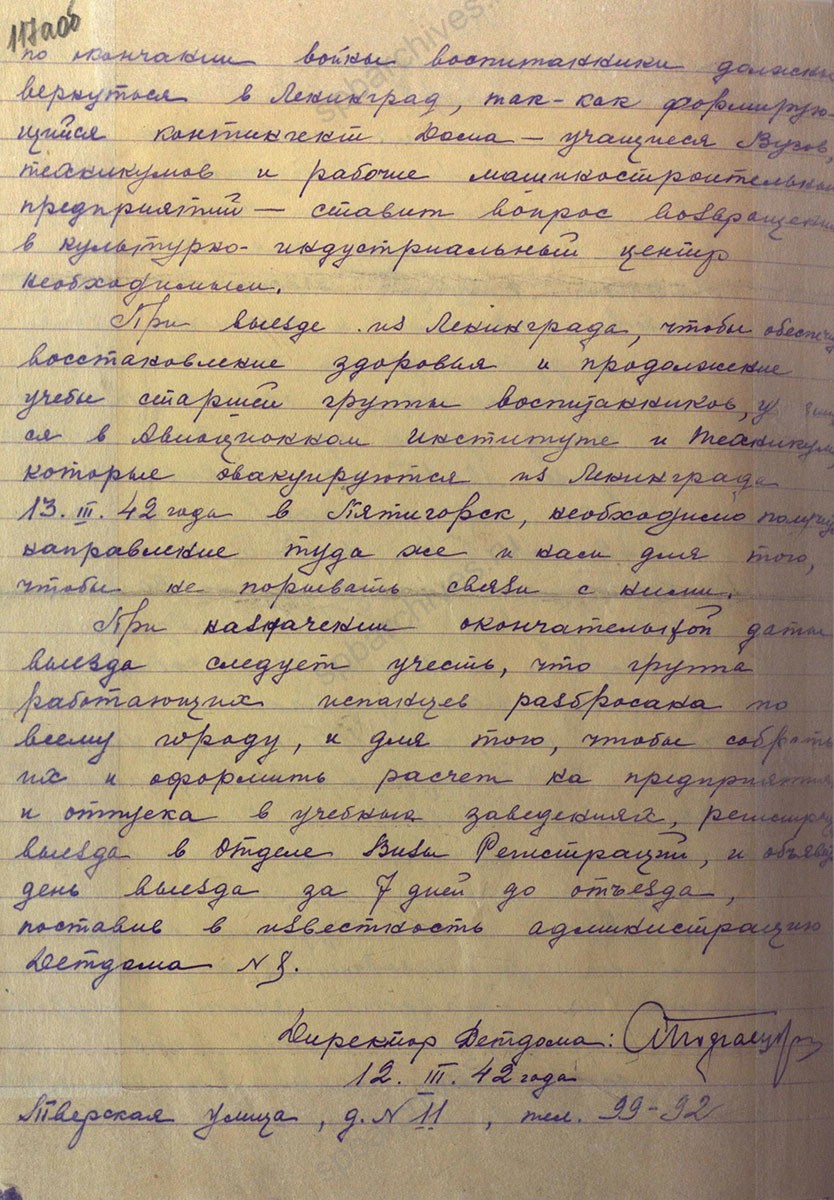 117а об
по окончании войны воспитанники должны
вернуться в Ленинград, так-как формирую-
щийся контингент Дома — учащиеся Вузов,
техникумов и рабочие машиностроительных
предприятий — ставит вопрос возвращения
в культурно-индустриальный центр
необходимым.
При выезде из Ленинграда, чтобы обеспечить
восстановление здоровья и продолжение
учебы старшей группы воспитанников,
ся в Авиационном институте и Техникуме
которые эвакуируются из Ленинграда
13.III.42 года в Пятигорск, необходимо получить
направление туда же и нам для того,
чтобы не порывать связи с ними.
При назначении окончательной даты
выезда следует учесть, что группа
работающих испанцев разбросана по
всему городу, и для того, чтобы собрать
их и оформить расчет на предприятиях
и отпуска в учебных заведениях,
выезда в Отделе Визы Регистраций, и
день выезда за 7 дней до отъезда,
поставив в известность администрацию
Детдома N 8.
Директор Детдома:
12.III.42 года
Тверская улица, д. N 11, тел. 99-92
spbarchives.ru
spbarchives.ru
spbarchives.ru